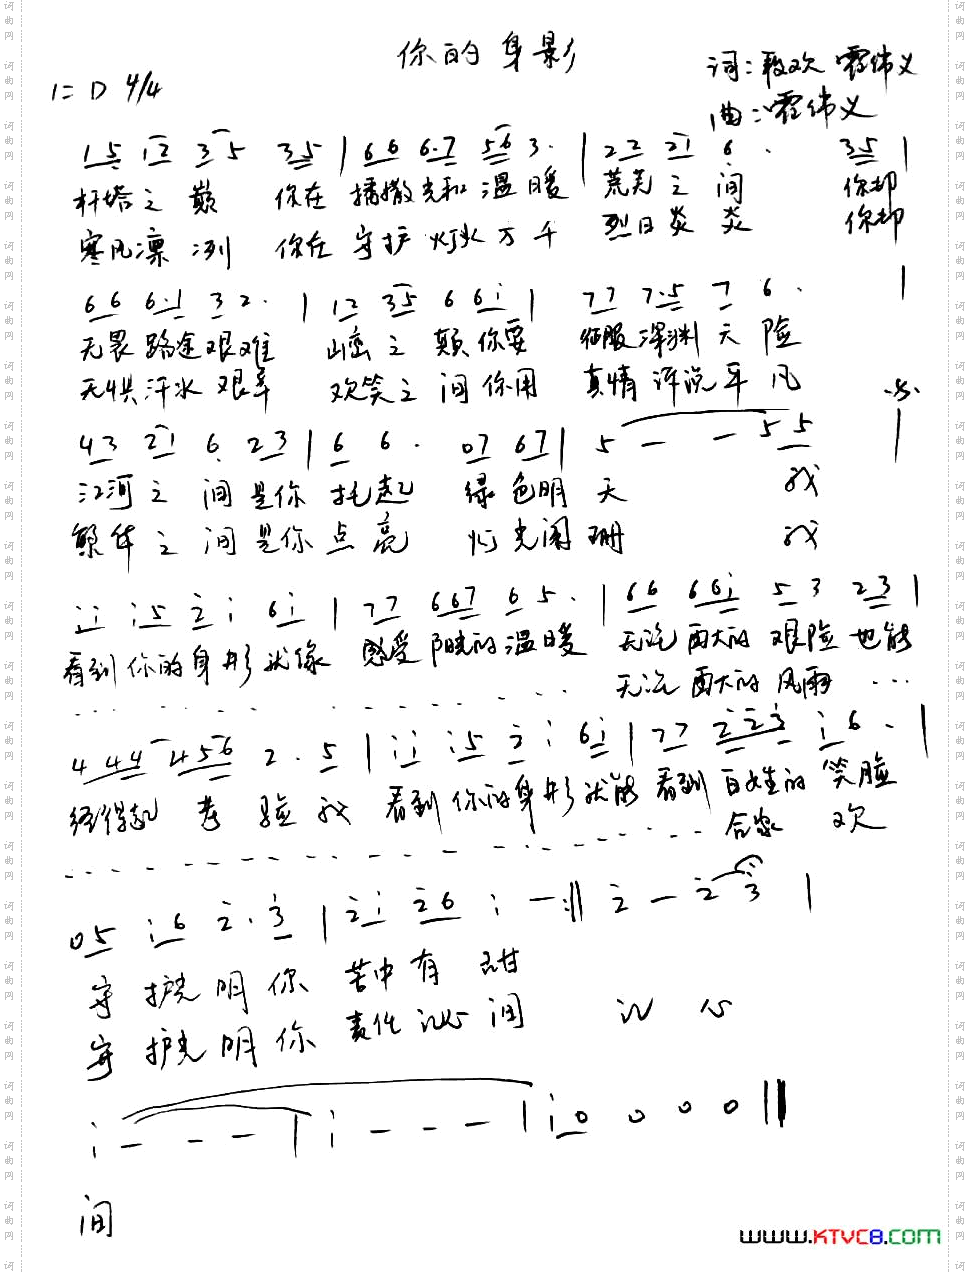 你的身影
1=D 4/4
词:段欢 霍伟义
曲:霍伟义
1 5 1 2 3 5 3 5 | 6 6 6·7 5 6 3· | 2 2 2 1 6· 3 5 |
杆塔之巅 你在播撒光和温暖 荒芜之间 你却
寒风凛冽 你在守护灯火万千 烈日炎炎 你却
6 6 6·1 3 2· | 1 2 3 5 6 6 i | 7 7 7·5 7 6· |
无畏路途艰难 山峦之巅你要 征服深渊天险
无惧汗水艰辛 欢笑之间你用 真情诉说平凡
4 3 2 1 6 2 3 | 6 6· 0 7 6 7 | 5 - - 5 5 |
江河之间是你托起 绿色明天 我
繁华之间是你点亮 灯光阑珊 我
i i i 5 2 i 6 i | 7 7 6 6 7 6 5· | 6 6 6 6 i 5 3 2 3 |
看到你的身影就像 感受阳光的温暖 无论再大的艰险也能
无论再大的风雨 ...
4 4 4 4 5 6 2· 5 | i i i 5 2 i 6 i | 7 7 2 2 3 i 6· |
经得起考验我 看到你的身影就能看到百姓的笑脸
合家欢
0 5 i 6 2· 3 | 2 i 2 6 i - :|| 2 - 2 3 |
守护光明你 苦中有甜
守护光明你 责任心间 心
i - - - | i - - - | i 0 0 0 0 ||
间
www.KTVC8.com